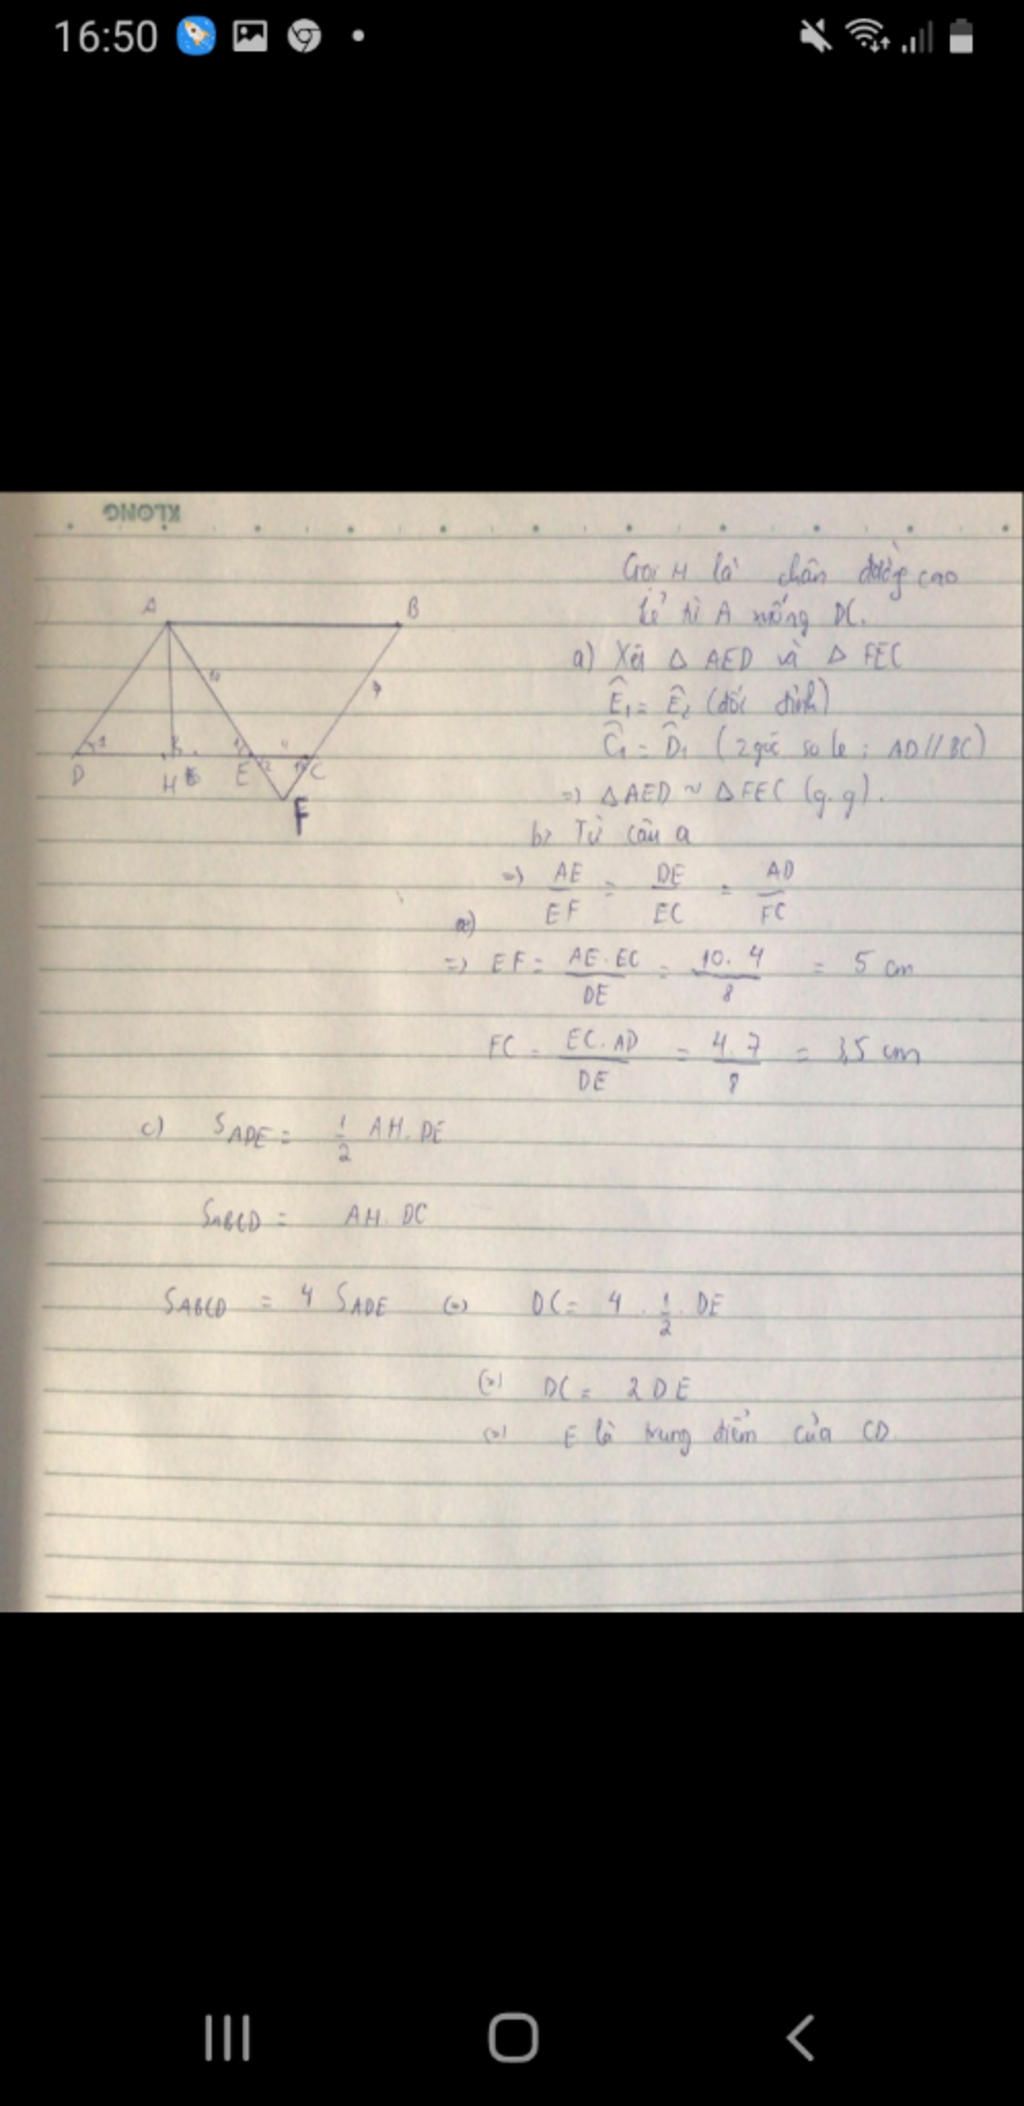 16:50
KLONG
Gọi H là chân đường cao
kẻ từ A xuống DC.
A
B
10
7
1
8
1
4
2
1
D
H
E
C
F
a) Xét Δ AED và Δ FEC
Ê₁ = Ê₂ (đối đỉnh)
Ĉ₁ = D̂₁ (2 góc so le; AD // BC)
=> Δ AED ~ Δ FEC (g.g).
b> Từ câu a
=> AE/EF = DE/EC = AD/FC
=> EF = AE.EC/DE = 10.4/8 = 5 cm
FC = EC.AD/DE = 4.7/8 = 3,5 cm
c) S_ADE = 1/2 AH.DE
S_ABCD = AH.DC
S_ABCD = 4 S_ADE (=) DC = 4.1/2.DE
(=) DC = 2DE
(=) E là trung điểm của CD